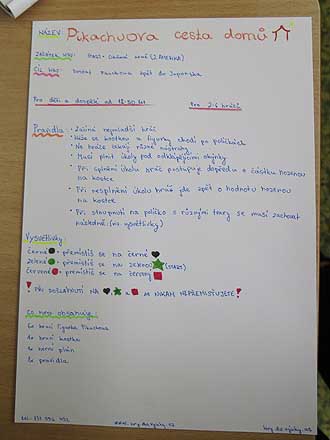 NÁZEV: Pikachuova cesta domů
ZAČÁTEK HRY: START - Začíná (Z AMERIKA)
CÍL HRY: Dostat Pikachua zpět do Japonska
Pro děti a dospělé od
Pro: 2-6 hráčů
Pravidla: • Začíná nejmladší hráč
• Hází se kostkou a figurky chodí po políčkách
• Na hráče čekají různé nástrahy
• Musí plnit úkoly pod odklápějícími okýnky
• Při splnění úkolu hráč postupuje dopředu o částku hozenou
na kostce
• Při nesplnění úkolu hráč jde zpět o hodnotu hozenou
na kostce
• Při stoupnutí na políčko s různými tvary se musí zachovat
následně: (viz. vysvětlivky)
Vysvětlivky:
černé - přemístíš se na černé
zelené - přemístíš se na zelenou (START)
červené - přemístíš se na červený
! PŘI DOSÁHNUTÍ NA , A SE NIKAM NEPŘEMISŤUJETE!
Co hra obsahuje:
6x hrací figurka Pikachua
1x hrací kostka
1x herní plán
1x pravidla